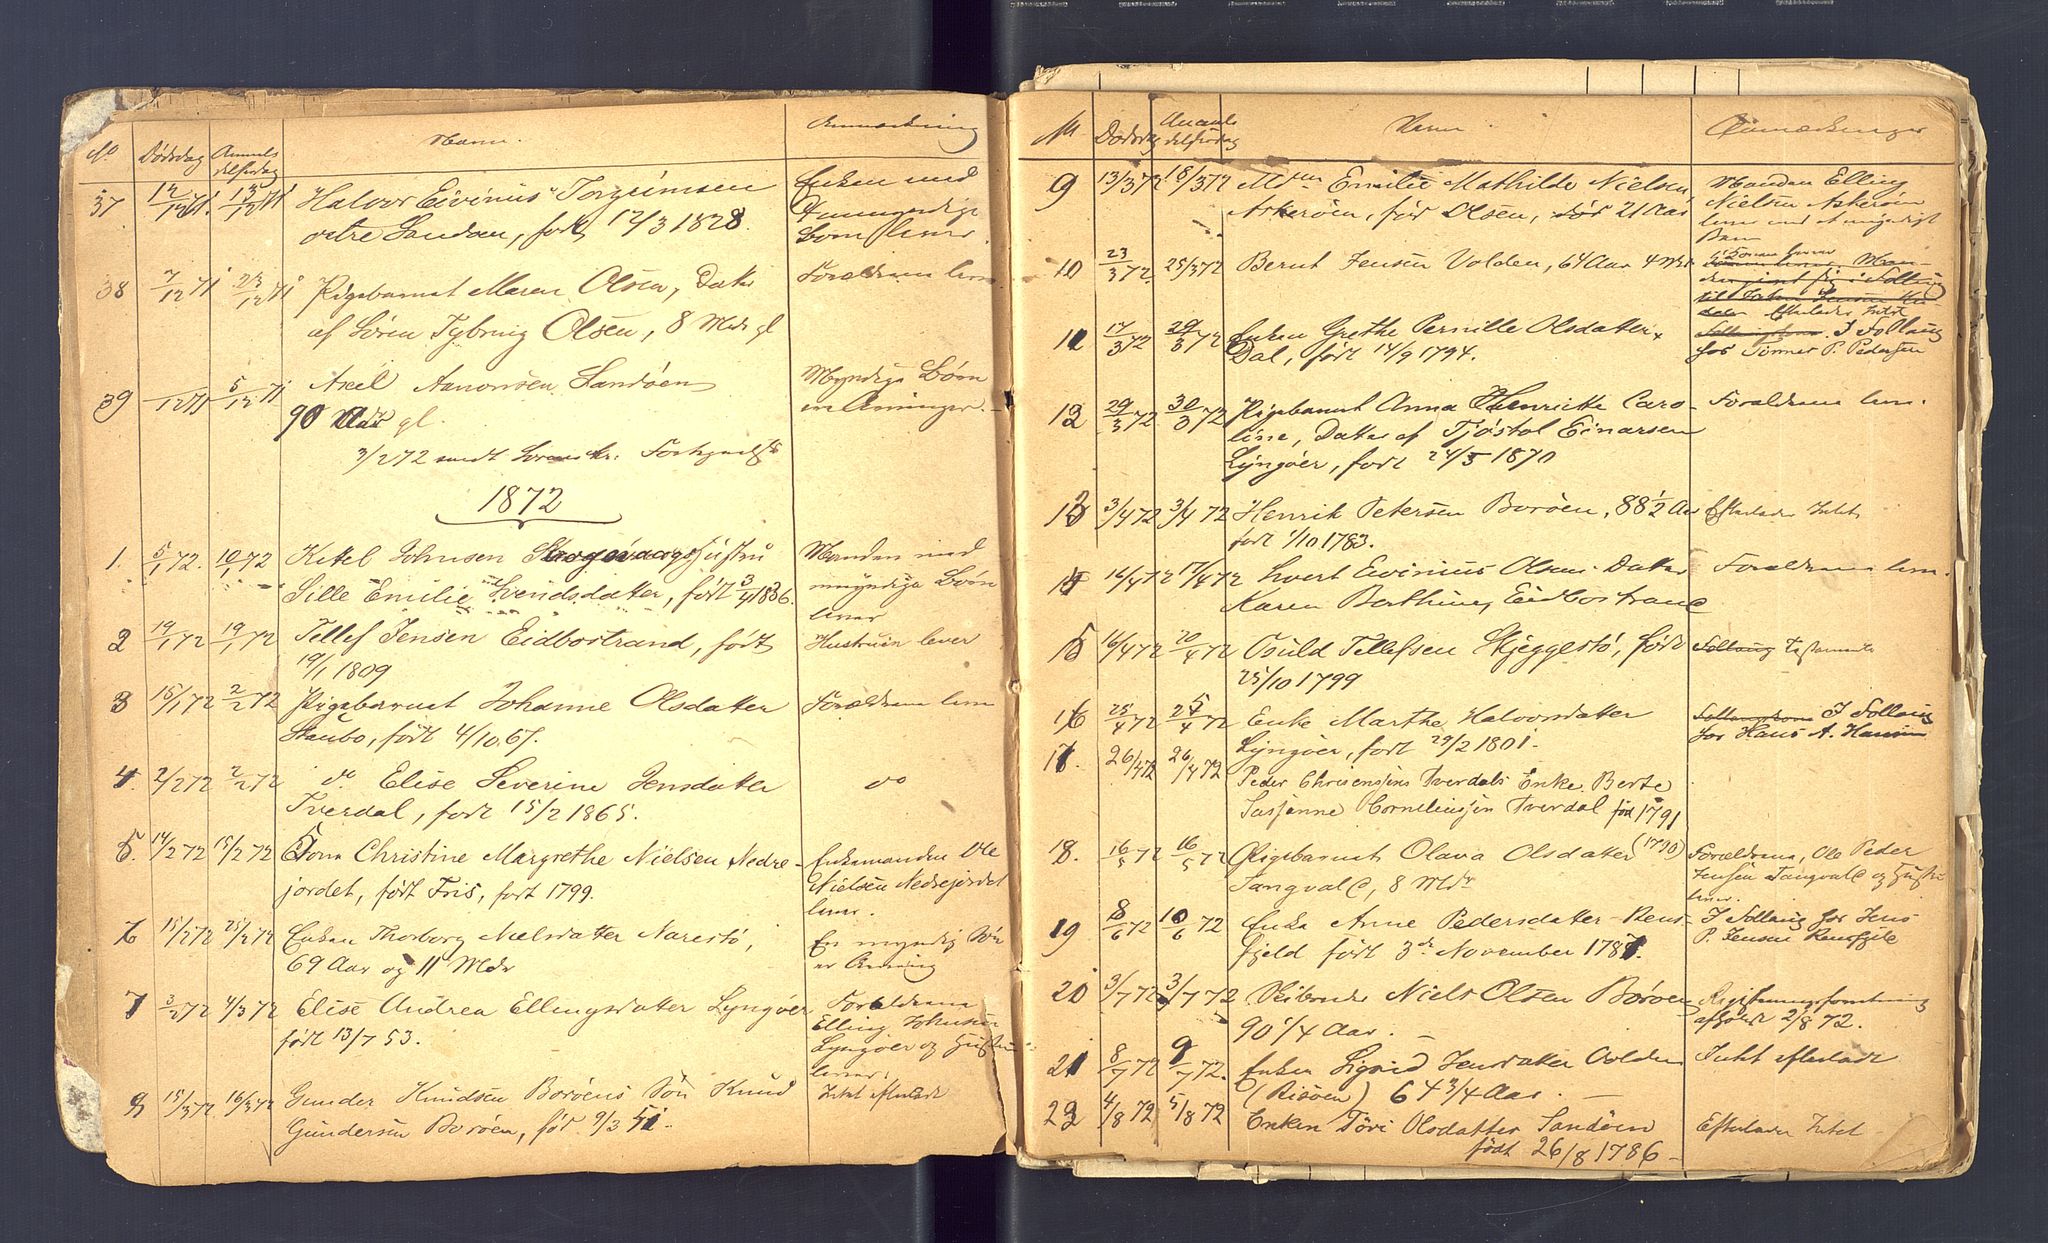 No Dødsdag Anmeldelsesdag Navn. Anmærkning
37 12/12 71. 13/12 71 Halvor Eivinius Torgrimsen Enken med
østre Sandøen, født 12/3 1828. umyndige
Børn lever.
38 7/12 71 23/12 71 Pigebarnet Maren Olsen, Datter Forældrene lever
af Søren Tybring Olsen, 8 Mdr gl
39 /12 71 5/12 71 Axel Aanonsen Sandøen Myndige Børn
90 Aar gl. ere Arvinger.
3/2 72 sendt
1872
1. 5/1 72. 10/1 72 Kitel Johnsen Hustru Manden med
Sille Emilie Svendsdatter, født 3/4 1836. umyndige Børn
lever
2 19/1 72 19/1 72 Tellef Jensen Eidbostrand, født Hustruen lever
19/1 1809
3 15/1 72 2/2 72 Pigebarnet Johanne Olsdatter Forældrene lever
Staubo, født 4/10 67.
4. 2/2 72 2/2 72 do Elise Severine Jensdatter do
Tverdal, født 15/2 1865.
5. 14/2 72 15/2 72 Christine Margrethe Nielsen Nedre- Enkemanden Ole
jordet, født Fris, født 1799. Nielsen Nedrejordet
lever.
6 15/2 72 25/2 72 Enken Thorborg Nielsdatter Narestø, En myndig Søn
69 Aar og 11 Mdr er Arving
7 3/2 72 4/3 72 Elise Andrea Ellingsdatter Lyngøer Forældrene
født 13/7 53. Elling Johnsen
Lyngøer og Hustru
lever.
9 15/3 72 16/3 72 Gunder Knudsen Borøens Søn Knud Intet efterladt
Gundersen Borøen, fød. 9/3 51.
No Dødsdag Anmeldelsesdag Navn Anmærkninger
9 13/3 72 18/3 72 Mdm Emilie Mathilde Nielsen Manden Elling
Askerøen, fød Olsen, 21 Aar Nielsen Askerøen
lever med et umyndigt
Barn
10 23/3 72 25/3 72 Bernt Jensen Volden, 64 Aar 4 Konen lever
Efterlader Intet
11 17/3 72 29/3 72 Enken Grethe Pernille Olsdatter I Følloug
Dal, født 14/9 1794. hos Tømmer P. Pedersen
12 29/3 72 30/3 72 Pigebarnet Anna Henriette Caro- Forældrene lever.
line, Datter af Tjøstol Einarsen
Lyngøer, født 24/5 1870
13 3/4 72 3/4 72 Henrik Petersen Borøen, 88 1/2 Aar Efterlader Intet
født 1/10 1783.
14 16/4 72 17/4 72 Evert Evinius Olsens Datter Forældrene lever.
Karen Berthine, Eidbostrand
15 16/4 72 20/4 72 Osuld Tellefsen Skjeggestø, født Testamente
25/10 1799
16 25/4 72 25/4 72 Enke Marthe Halvorsdatter I Følloug
Lyngøer, født 29/2 1801. hos Hans A. Hansen
17. 26/4 72 26/4 72 Peder Chrisenssens Tverdals Enke Berte
Susanne Corneliussen Tverdal fød 1791
(1790)
18. 16/5 72 16/5 72 Pigebarnet Olava Olsdatter Forældrene, Ole Peder
Tangvald, 8 Mdr Jensen Tangvald og Hustru
lever.
19 8/6 72 10/6 72 Enke Anne Pedersdatter Rens- I Følloug hos Jens
fjeld født 3de November 1787. P. Jensen Rensfjeld
20 3/7 72 3/7 72 Niels Olsen Borøen Registreringsforretning
90 1/4 Aar. afholdt 2/8 72.
21 8/7 72 9/7 72. Enken Sigrid Jensdatter Volden Intet efterladt
(Risøen) 64 3/4 Aar.
22 4/8 72 5/8 72 Enken Tøri Olsdatter Sandøen Efterlader Intet
født 26/8 1786